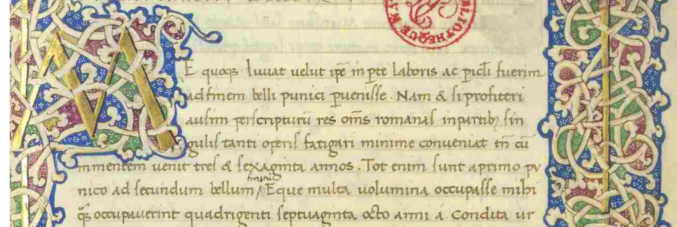 BIBLIOTHEQUE NA
ME quoqs Iuuat uelut ipe in pte laboris ac picli fuerim
ad finem belli punici puenisse. Nam & si profiteri
ausim perscripturū res oms romanas in partibz sin
gulis tanti operis fatigari minime conueniat tn cū
in mentem uenit tres & sexaginta annos. Tot enim sunt a primo pu
nico ad secundum bellum / Eque multa uolumina occupasse mihi
qs occupauerint quadrigenti septuaginta octo anni á. Condita ur